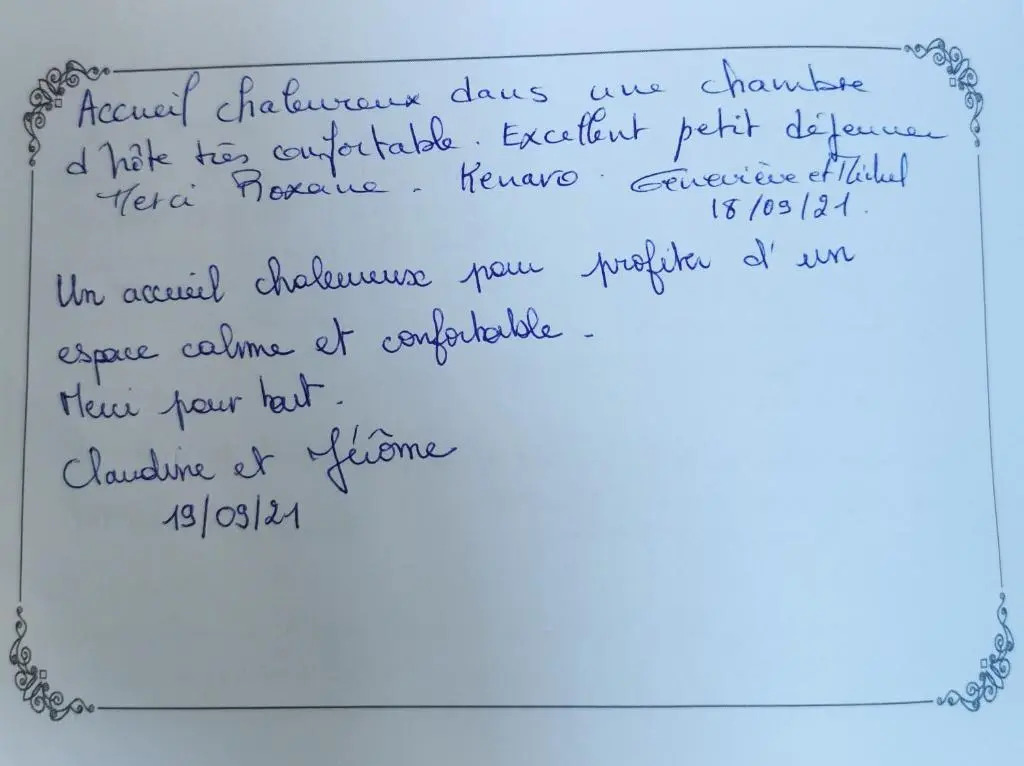 Accueil chaleureux dans une chambre
d'hôte très confortable. Excellent petit déjeuner
Merci Roxane. Kenavo. Geneviève et Michel
18/09/21.
Un accueil chaleureux pour profiter d'un
espace calme et confortable -
Merci pour tout.
Claudine et Jérôme
19/09/21